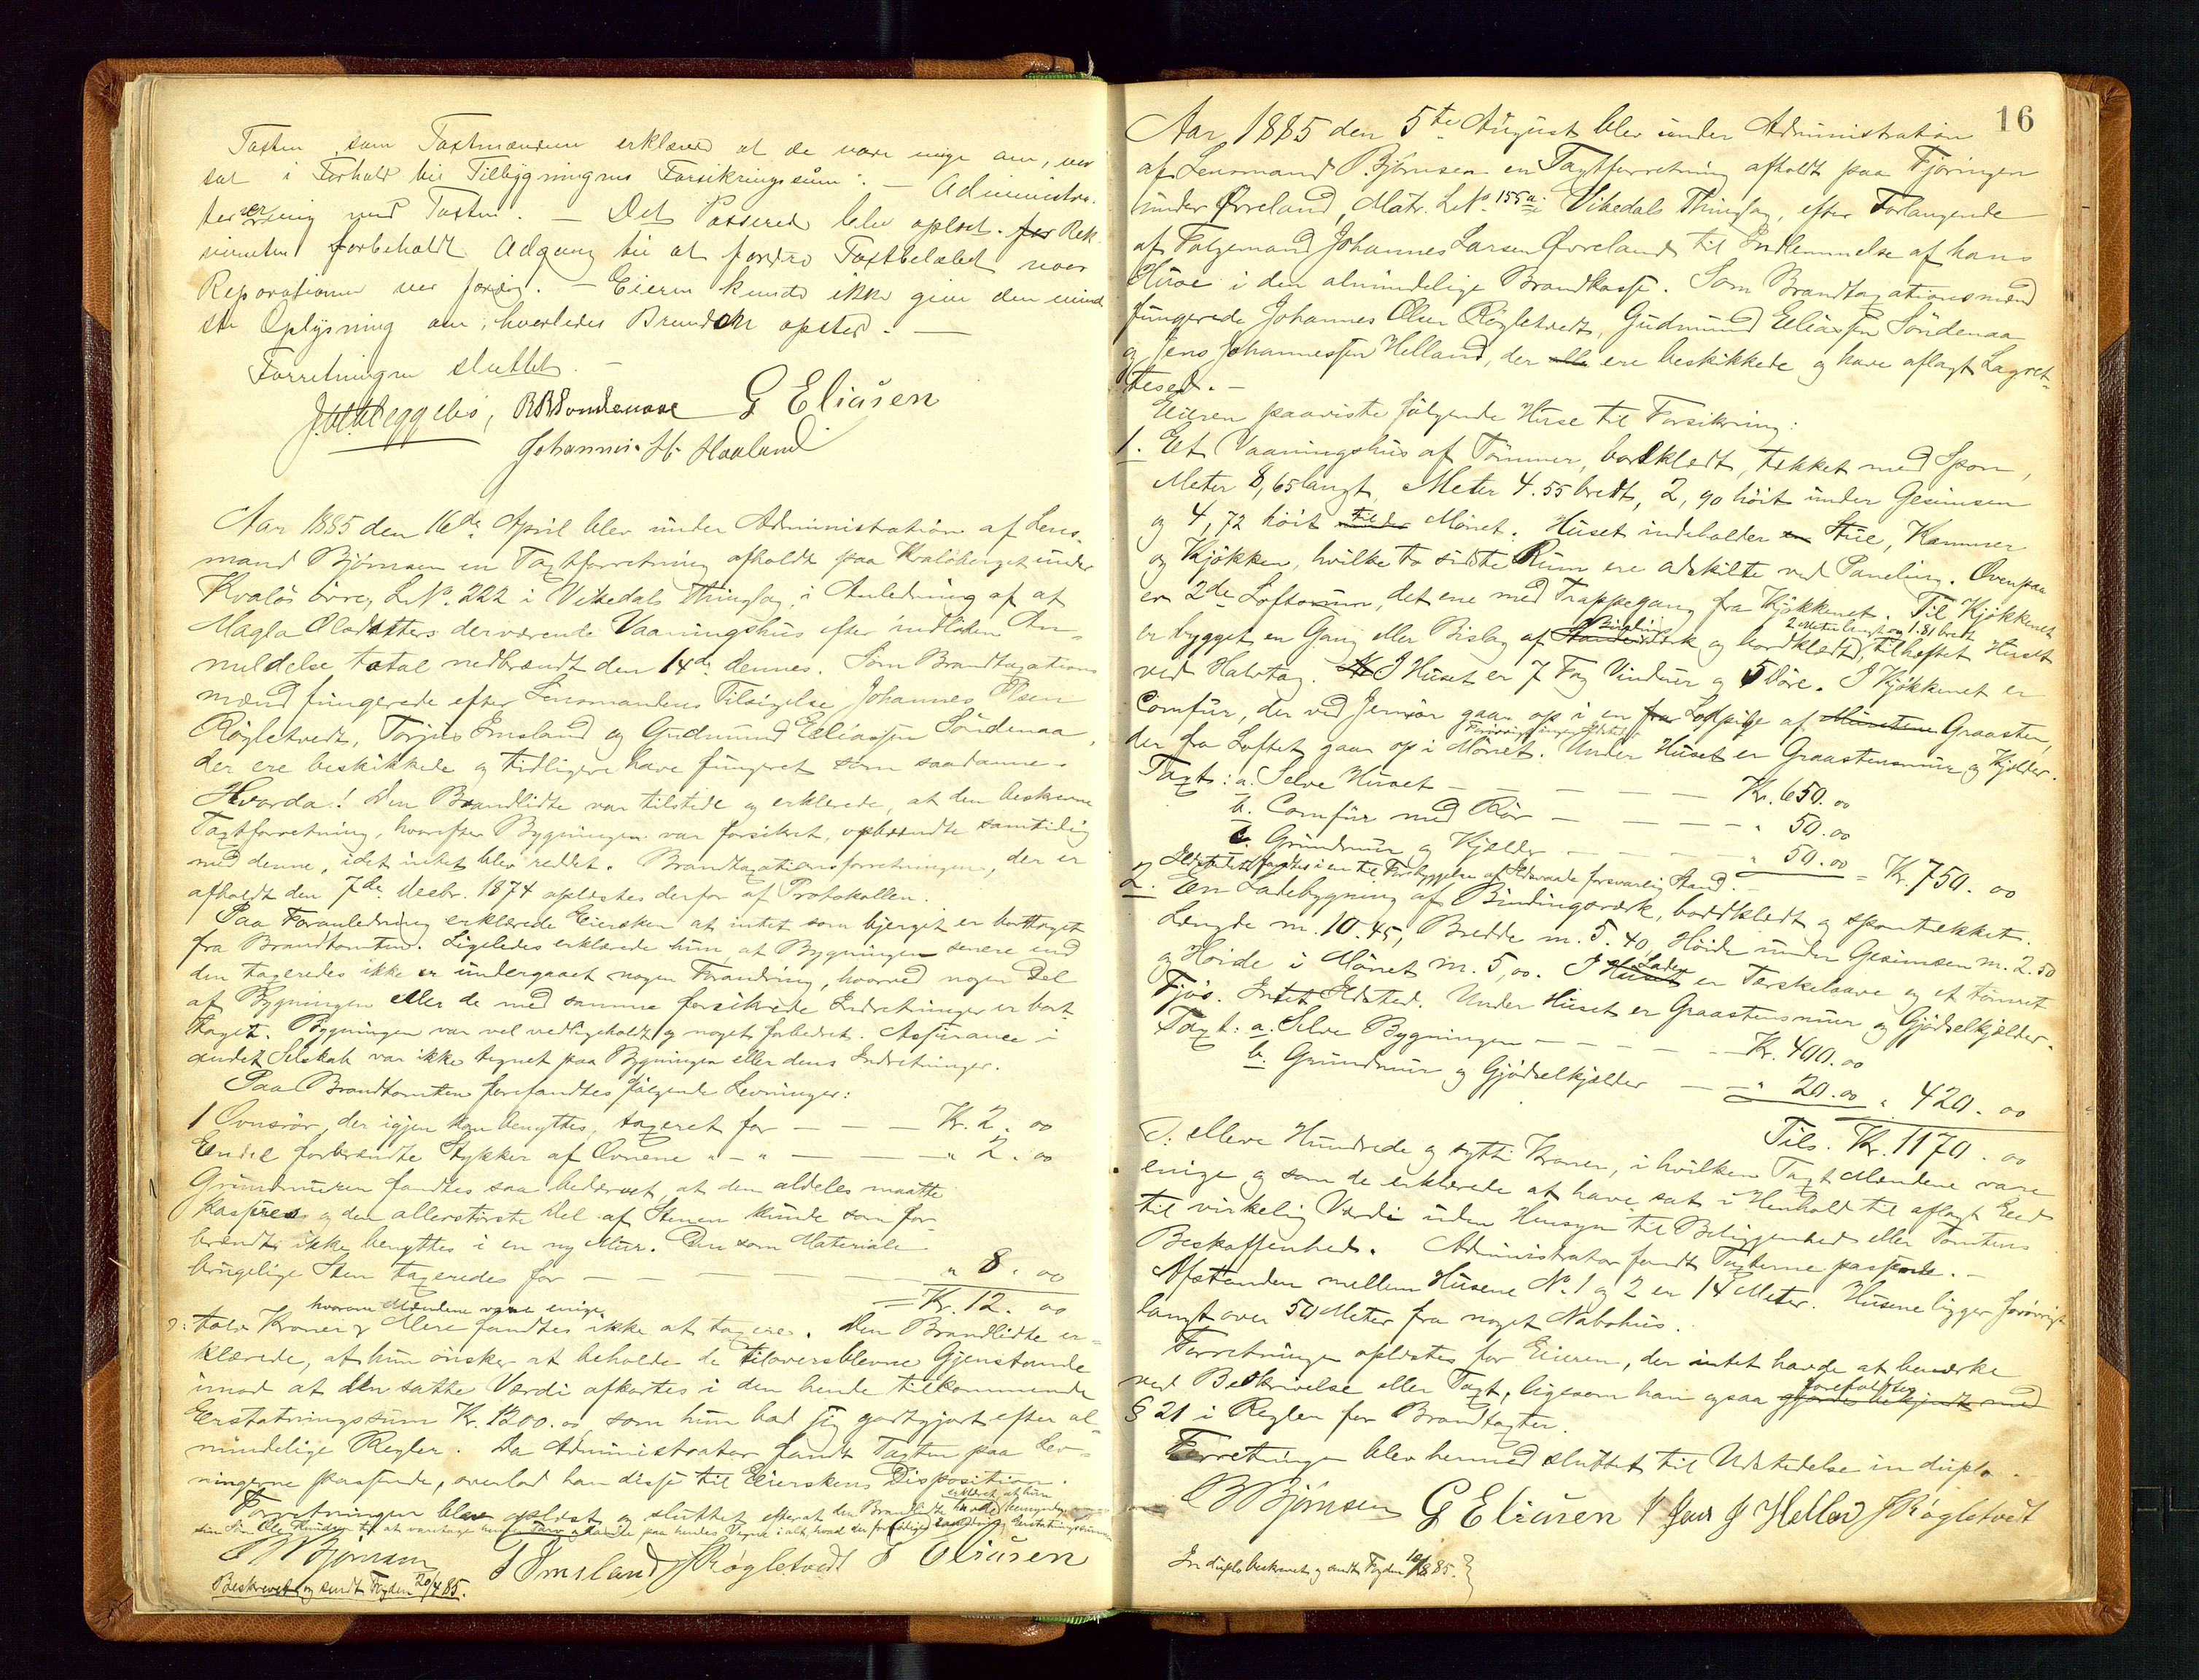 Taxten som Taxtmændene erklærede at de vare enige om, var
sat i Forhold til Tilbygningens Forsikringssum. — Administra-
tor enig med Taxten. — Det Passerede blev oplæst. for Rek
virenten forbeholdt Adgang til at fordre Taxtbeløbet naar
Reparationen var færdig. — Eieren kunde ikke give den mind
ste Oplysning om, hvorledes Branden opstod. —
Forretningen sluttet. —
G Eliasen
Johannes H. Haaland

Aar 1885 den 16de April blev under Administration af Lens-
mand Bjørnsen en Taxtforretning afholdt paa Kvaløberget under
Kvaløs øvre, L.No. 222 i Vikedals Thinglag, i Anledning af at
Magla Olasdatters derværende Vaaningshus efter indløben An-
meldelse total nedbrændt den 14de dennes. Som Brandtaxations
mænd fungerede efter Lensmandens Tilsigelse Johannes Olsen
Røgletvedt, Torjus Imsland og Gudmund Eliassen Søndenaa,
der ere beskikkede og tidligere have fungeret som saadanne.
Hvorda! Den Brandlidte var tilstede og erklærede, at den beskrevne
Taxtforretning, hvorefter Bygningen var forsikret, opbrændte samtidig
med denne, idet intet blev reddet. Brandtaxationsforretningen, der er
afholdt den 7de Decbr. 1874 oplæstes derfor af Protokollen.
Paa Foranledning erklærede Eiersken at intet som bjerget er borttaget
fra Brandtomten. Ligeledes erklærede hun, at Bygningen senere end
den taxeredes ikke er undergaaet nogen Forandring, hvorved nogen Del
af Bygningen eller de med samme forsikrede Indretninger er bort
taget. Bygningen var vel vedligeholdt og noget forbedret. Assurance i
andet Selskab var ikke tegnet paa Bygningen eller dens Indretninger.
Paa Brandtomten forefandtes følgende Levninger:
1 Ovnsrør, der igjen kan benyttes, taxeret for — — — Kr. 2. 00
Endel forbrændte Stykker af Ovnene " — " — — — " 2. 00
Grundmuren fandtes saa bedærvet, at den aldeles maatte
kasseres og den allerstørste Del af Stenen kunde som for
brændt ikke benyttes i en ny Mur. Den som Materiale
brugelige Sten taxeredes for — — — — " 8. 00
= Kr. 12. 00
hvorom Mændene vare enige.
ɔ: tolv Kroner. Mere fandtes ikke at taxere. Den Brandlidte er-
klærede, at hun ønsker at beholde de tiloversblevne Gjenstande
imod at den satte Værdi afkortes i den hende tilkommende
Erstatningssum Kr. 1200.00, som hun bad sig godtgjort efter al-
mindelige Regler. Da Administrator fandt Taxten paa Lev-
ningerne passende, overlod han disse til Eierskens Disposition.
erklæret at hun
Forretningen blev oplæst og sluttet efterat den Brandlidte havde bemyndiget
B Bjørnsen T Imsland J Røgletvedt G Eliasen
Beskrevet og sendt Fogden 20/4 85.

16
Aar 1885 den 5te August blev under Administration
af Lensmand B. Bjørnsen en Taxtforretning afholdt paa Fjøringen
under Øvreland, Matr. L.No. 155a i Vikedals Thinglag, efter Forlangende
af Folgemand Johannes Larsen Øvreland til Indlemmelse af hans
Huse i den almindelige Brandkasse. Som Brandtaxationsmænd
fungerede Johannes Olsen Røgletvedt, Gudmund Eliassen Søndenaa
og Jens Johannessen Helland, der alle ere beskikkede og have aflagt Lagret-
tesed. —
Eieren paaviste følgende Huse til Forsikring:
1. Et Vaaningshus af Tømmer, bordklædt, tækket med Spon,
Meter 8,65 langt, Meter 4.55 bredt, 2,90 høit under Gesimsen
og 4,72 høit til under Mønet. Huset indeholder en Stue, Kammer
og Kjøkken, hvilke to sidste Rum ere adskilte ved Paneling. Ovenpaa
er 2de Loftsrum, det ene med Trappegang fra Kjøkkenet. Til Kjøkkenet
Bindings 2 Meter langt og 1.81 bredt
er bygget en Gang eller Bislag af Standerværk og bordklædt, tilheftet Huset
ved Halvtag. I Huset er 7 Fag Vinduer og 5 Døre. I Kjøkkenet er
Comfur, der ved Jernrør gaar op i en fra Lodpibe af Mursten Graasten,
der fra Loftet gaar op i Mønet. Under Huset er Graastensmur og Kjelder.
Taxt: a. Selve Huset — — — — Kr. 650. 00
b. Comfur med Rør — — — — " 50. 00
c. Grundmur og Kjelder — — — — " 50. 00 = Kr. 750. 00
Ildstedet fandtes i en til Forebyggelse af Ildsvaade forsvarlig Stand. —
2. En Ladebygning af Bindingsværk, bordklædt og spontækket.
Længde m. 10.45, Bredde m. 5.40, Høide under Gesimsen m. 2.50
og Høide i Mønet m. 5,00. I Huset Laden er Tærskelaave og et tømret
Fjøs. Intet Ildsted. Under Huset er Graastensmur og Gjødselkjelder.
Taxt: a. Selve Bygningen — — — — Kr. 400. 00
b. Grundmur og Gjødselkjelder — — " 20. 00 " 420. 00
Tils. Kr. 1170. 00
ɔ: elleve Hundrede og sytti Kroner, i hvilken Taxt Mændene vare
enige og som de erklærede at have sat i Henhold til aflagt Eed
til virkelig Værdi uden Hensyn til Beliggenhed eller Tomtens
Beskaffenhed. Administrator fandt Taxterne passende. —
Afstanden mellem Husene No. 1 og 2 er 14 Meter. Husene ligger forøvrigt
langt over 50 Meter fra noget Nabohus.
Forretningen oplæstes for Eieren, der intet havde at bemærke
ved Beskrivelse eller Taxt, ligesom han ogsaa gjordes bekjendt med foreholdtes
§ 21 i Regler for Brandtaxter.
Forretningen blev hermed sluttet til Udstedelse in duplo.
B Bjørnsen G Eliasen Jens J Helland J Røgletvedt
In duplo beskrevet og sendt Fogden 10/8 85.